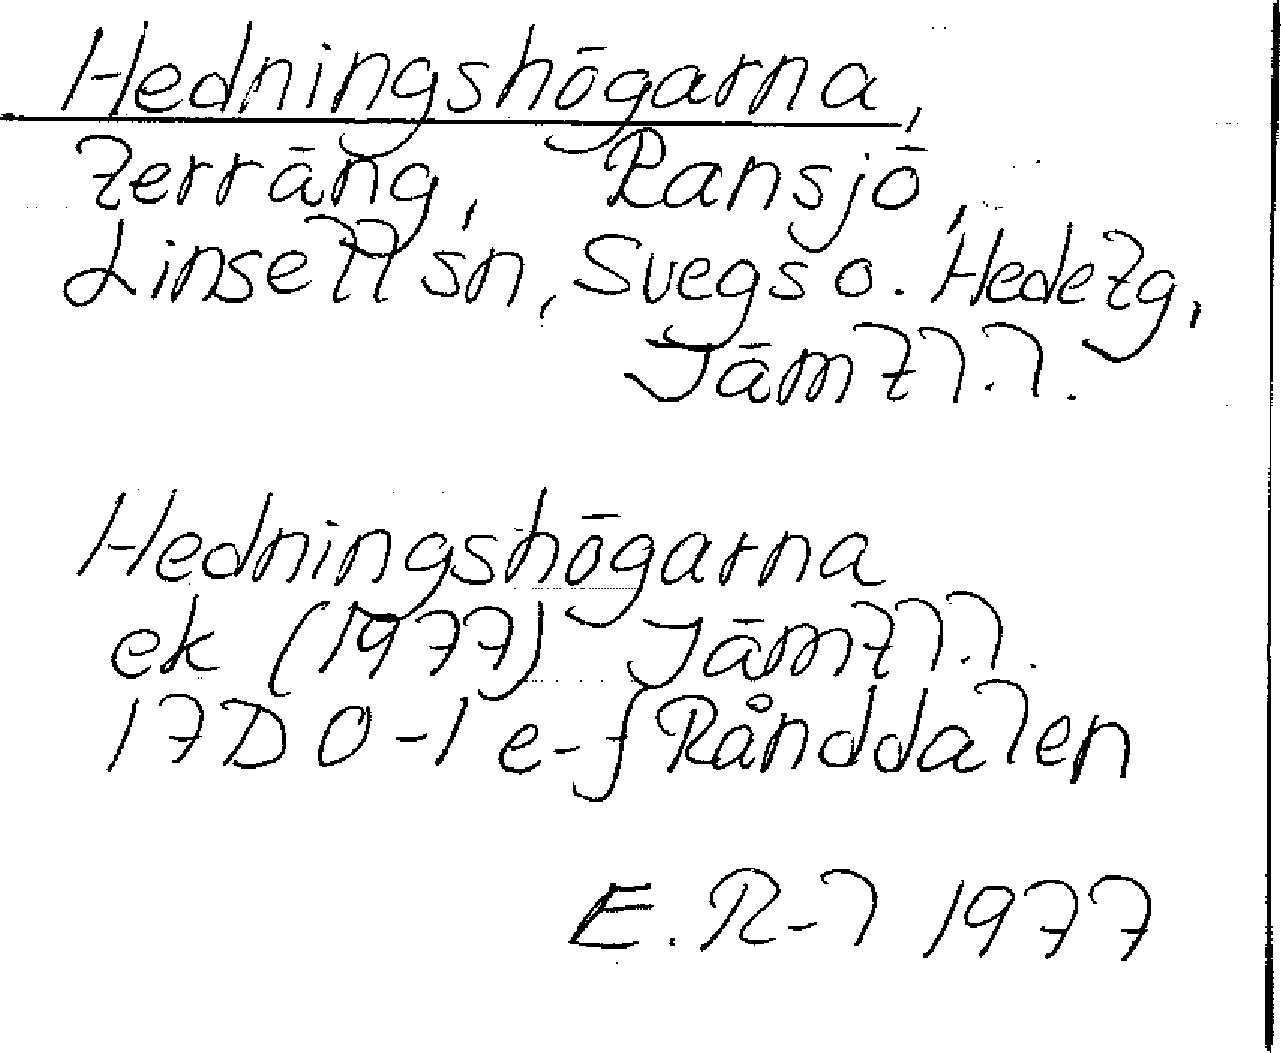 Hedningshögarna,
terräng, Ransjö,
Linsell sn, Svegs o. Hede tg,
Jämtl.l.
Hedningshögarna
ek (1977) Jämtl.l.
17D 0-1 e-f Rånddalen
E.R-l 1977